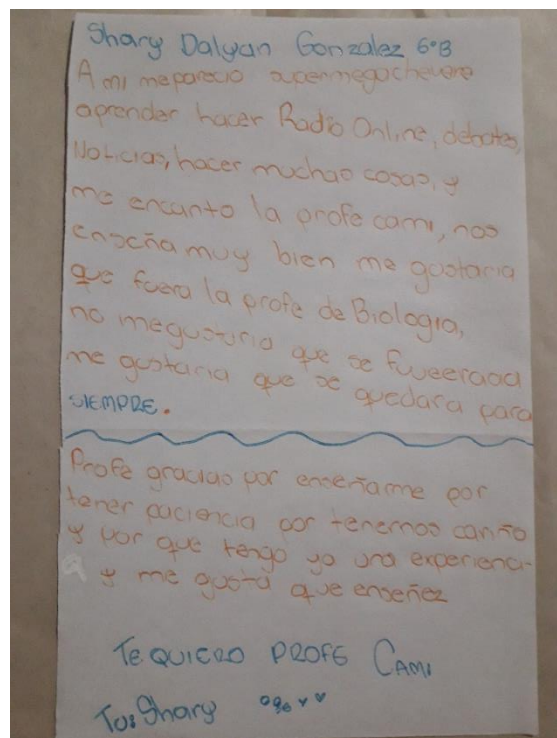 Shary Dalyan Gonzalez 6°B
A mi meparecio supermegachevere
aprender hacer Radio Online, debates,
Noticias, hacer muchas cosas, y
me encanto la profe cami, nos
enseña muy bien me gustaria
que fuera la profe de Biologia,
no megustaria que se fuveeraaa
me gustaria que se quedara para
SIEMPRE.
Profe gracias por enseñarme por
tener paciencia por tenernos cariño
y por que tengo ya una experienci-
a y me gusta que enseñez
Te QUIERO PROFE CAMI
Tu: Shary